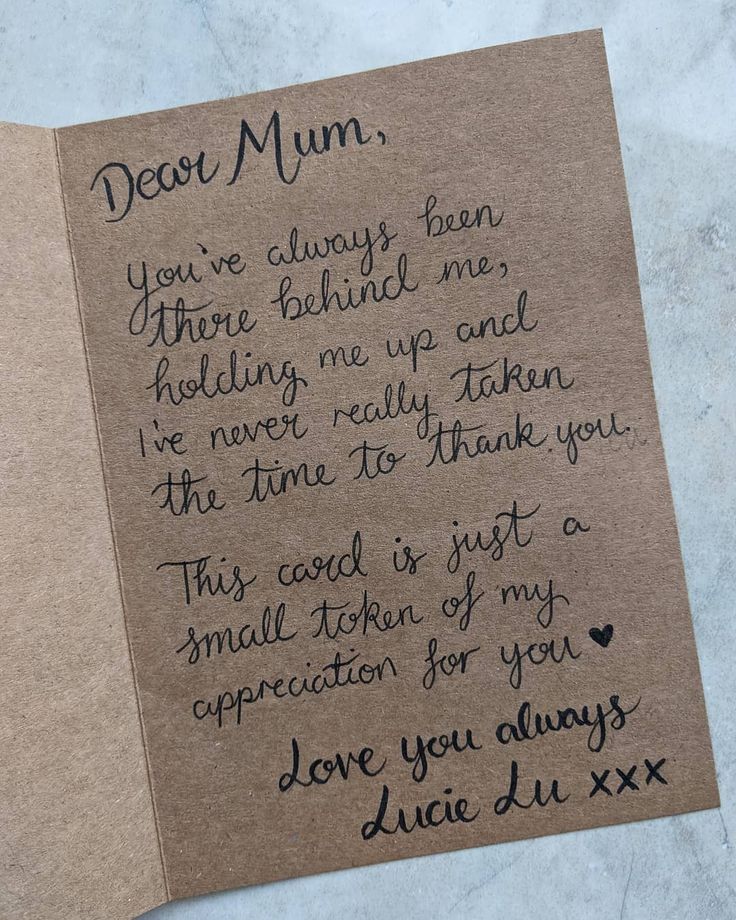 Dear Mum,
You've always been
there behind me,
holding me up and
I've never really taken
the time to thank you.
This card is just a
small token of my
appreciation for you ♥
Love you always
Lucie Lu xxx